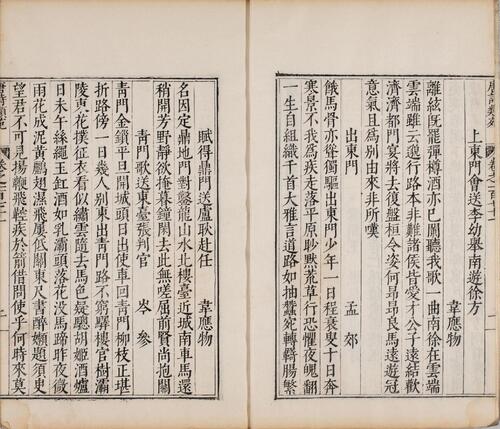 上東門會送李幼舉南遊徐方 韋應物
離絃旣罷彈樽酒亦已闌聽我歌一曲南徐在雲端
雲端雖云邈行路本非難諸侯皆愛才公子遠結歡
濟濟都門宴將去復盤桓令姿何昂昂良馬遠遊冠
意氣且爲別由來非所嘆
出東門 孟郊
餓馬骨亦聳獨驅出東門少年一日程衰叟十日奔
寒景不我爲疾走落平原眇默荒草行恐懼夜魄翻
一生自組織千首大雅言道路如抽蠶宛轉羇腸繁
賦得鼎門送盧耿赴任 韋應物
名因定鼎地門對鑿龍山水北樓臺近城南車馬還
稍開芳野靜欲掩暮鐘閑去此無嗟屈前賢尚抱關
青門歌送東臺張判官 岑參
青門金鎖平旦開城頭日出使車回青門柳枝正堪
折路傍一日幾人別東出青門路不窮驛樓官樹灞
陵東花撲征衣看似繡雲隨去馬色疑驄胡姬酒爐
日未午絲繩玉缸酒如乳灞頭落花沒馬蹄昨夜微
雨花成泥黃鸝翅濕飛屢低關東尺書醉懶題須臾
望君不可見揚鞭飛鞚疾於箭借問使乎何時來莫
唐詩類苑